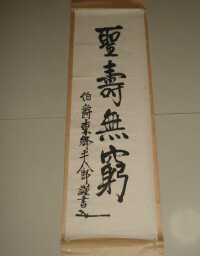 聖壽無窮
伯爵東郷平八郎謹書